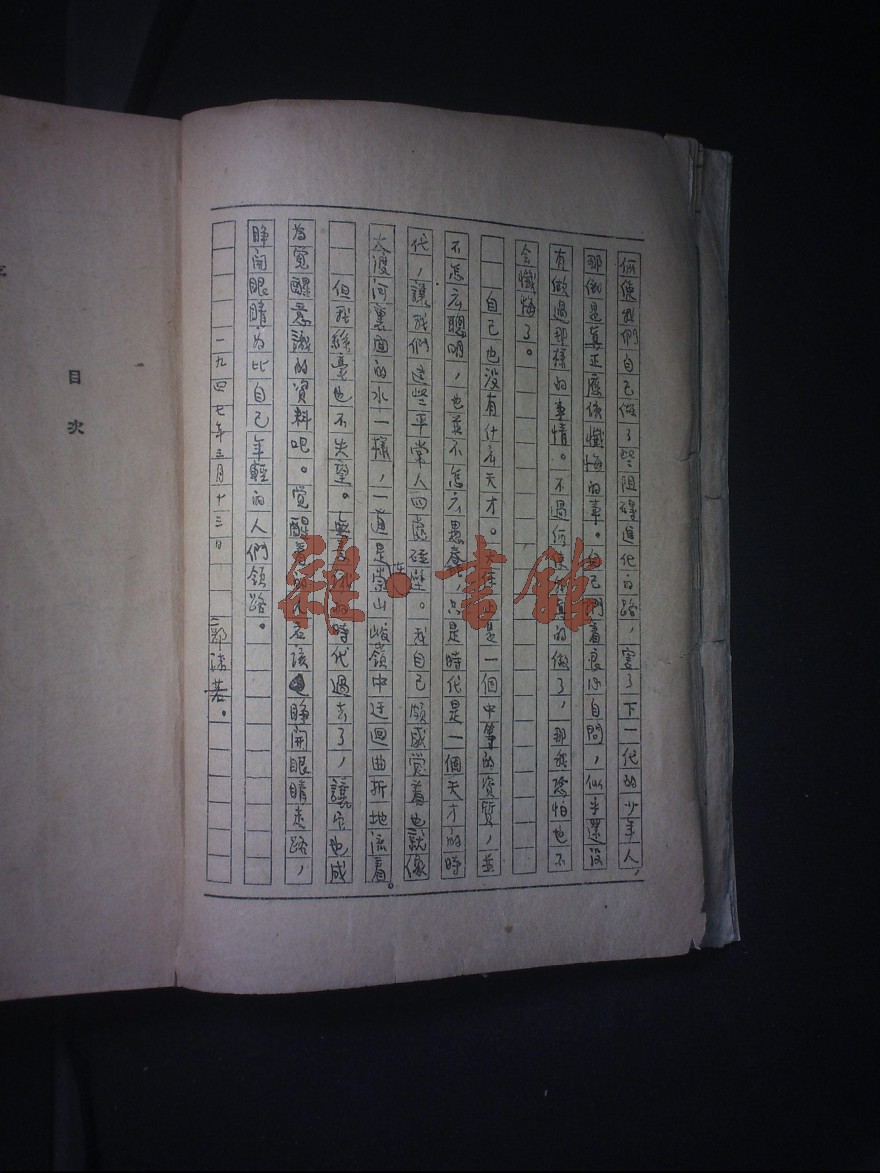 何使我們自己做了堅阻礙進化的路，害了下一代的少年人，
那倒是真正應該懺悔的事。自己們着良心自問，似乎還沒
有做過那樣的事情。不過何使真的做了，那我恐怕也不
会懺悔了。
自己也沒有什么天才。是一個中等的資質，並
不怎么聰明，也並不怎么愚蠢，只是時代是一個天才的時
代，讓我們這些平常人四處碰壁。我自己頗感觉着也就像
大渡河裏面的水一樣，一道是在崇山峻嶺中迂迴曲折地流着。
但我絲毫也不失望。時代過去了，讓它也成
為覚醒意識的資料吧。覚醒着的人應該睁開眼睛走路，
睁開眼睛为比自己年輕的人們領路。
一九四七年三月十三日 郭沫若。
目次
雜·書館